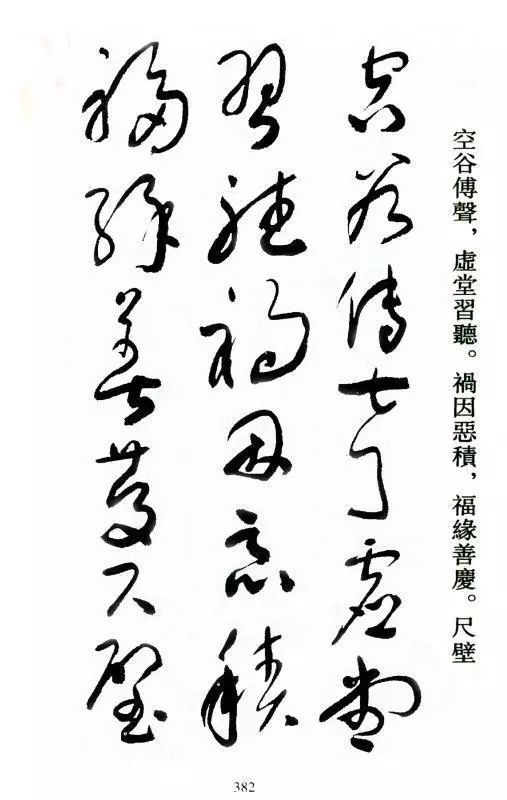 空谷傅聲，虛堂習聽。禍因惡積，福緣善慶。尺壁
空谷傳聲虛堂
習聽禍因惡積
福緣善慶尺璧
382